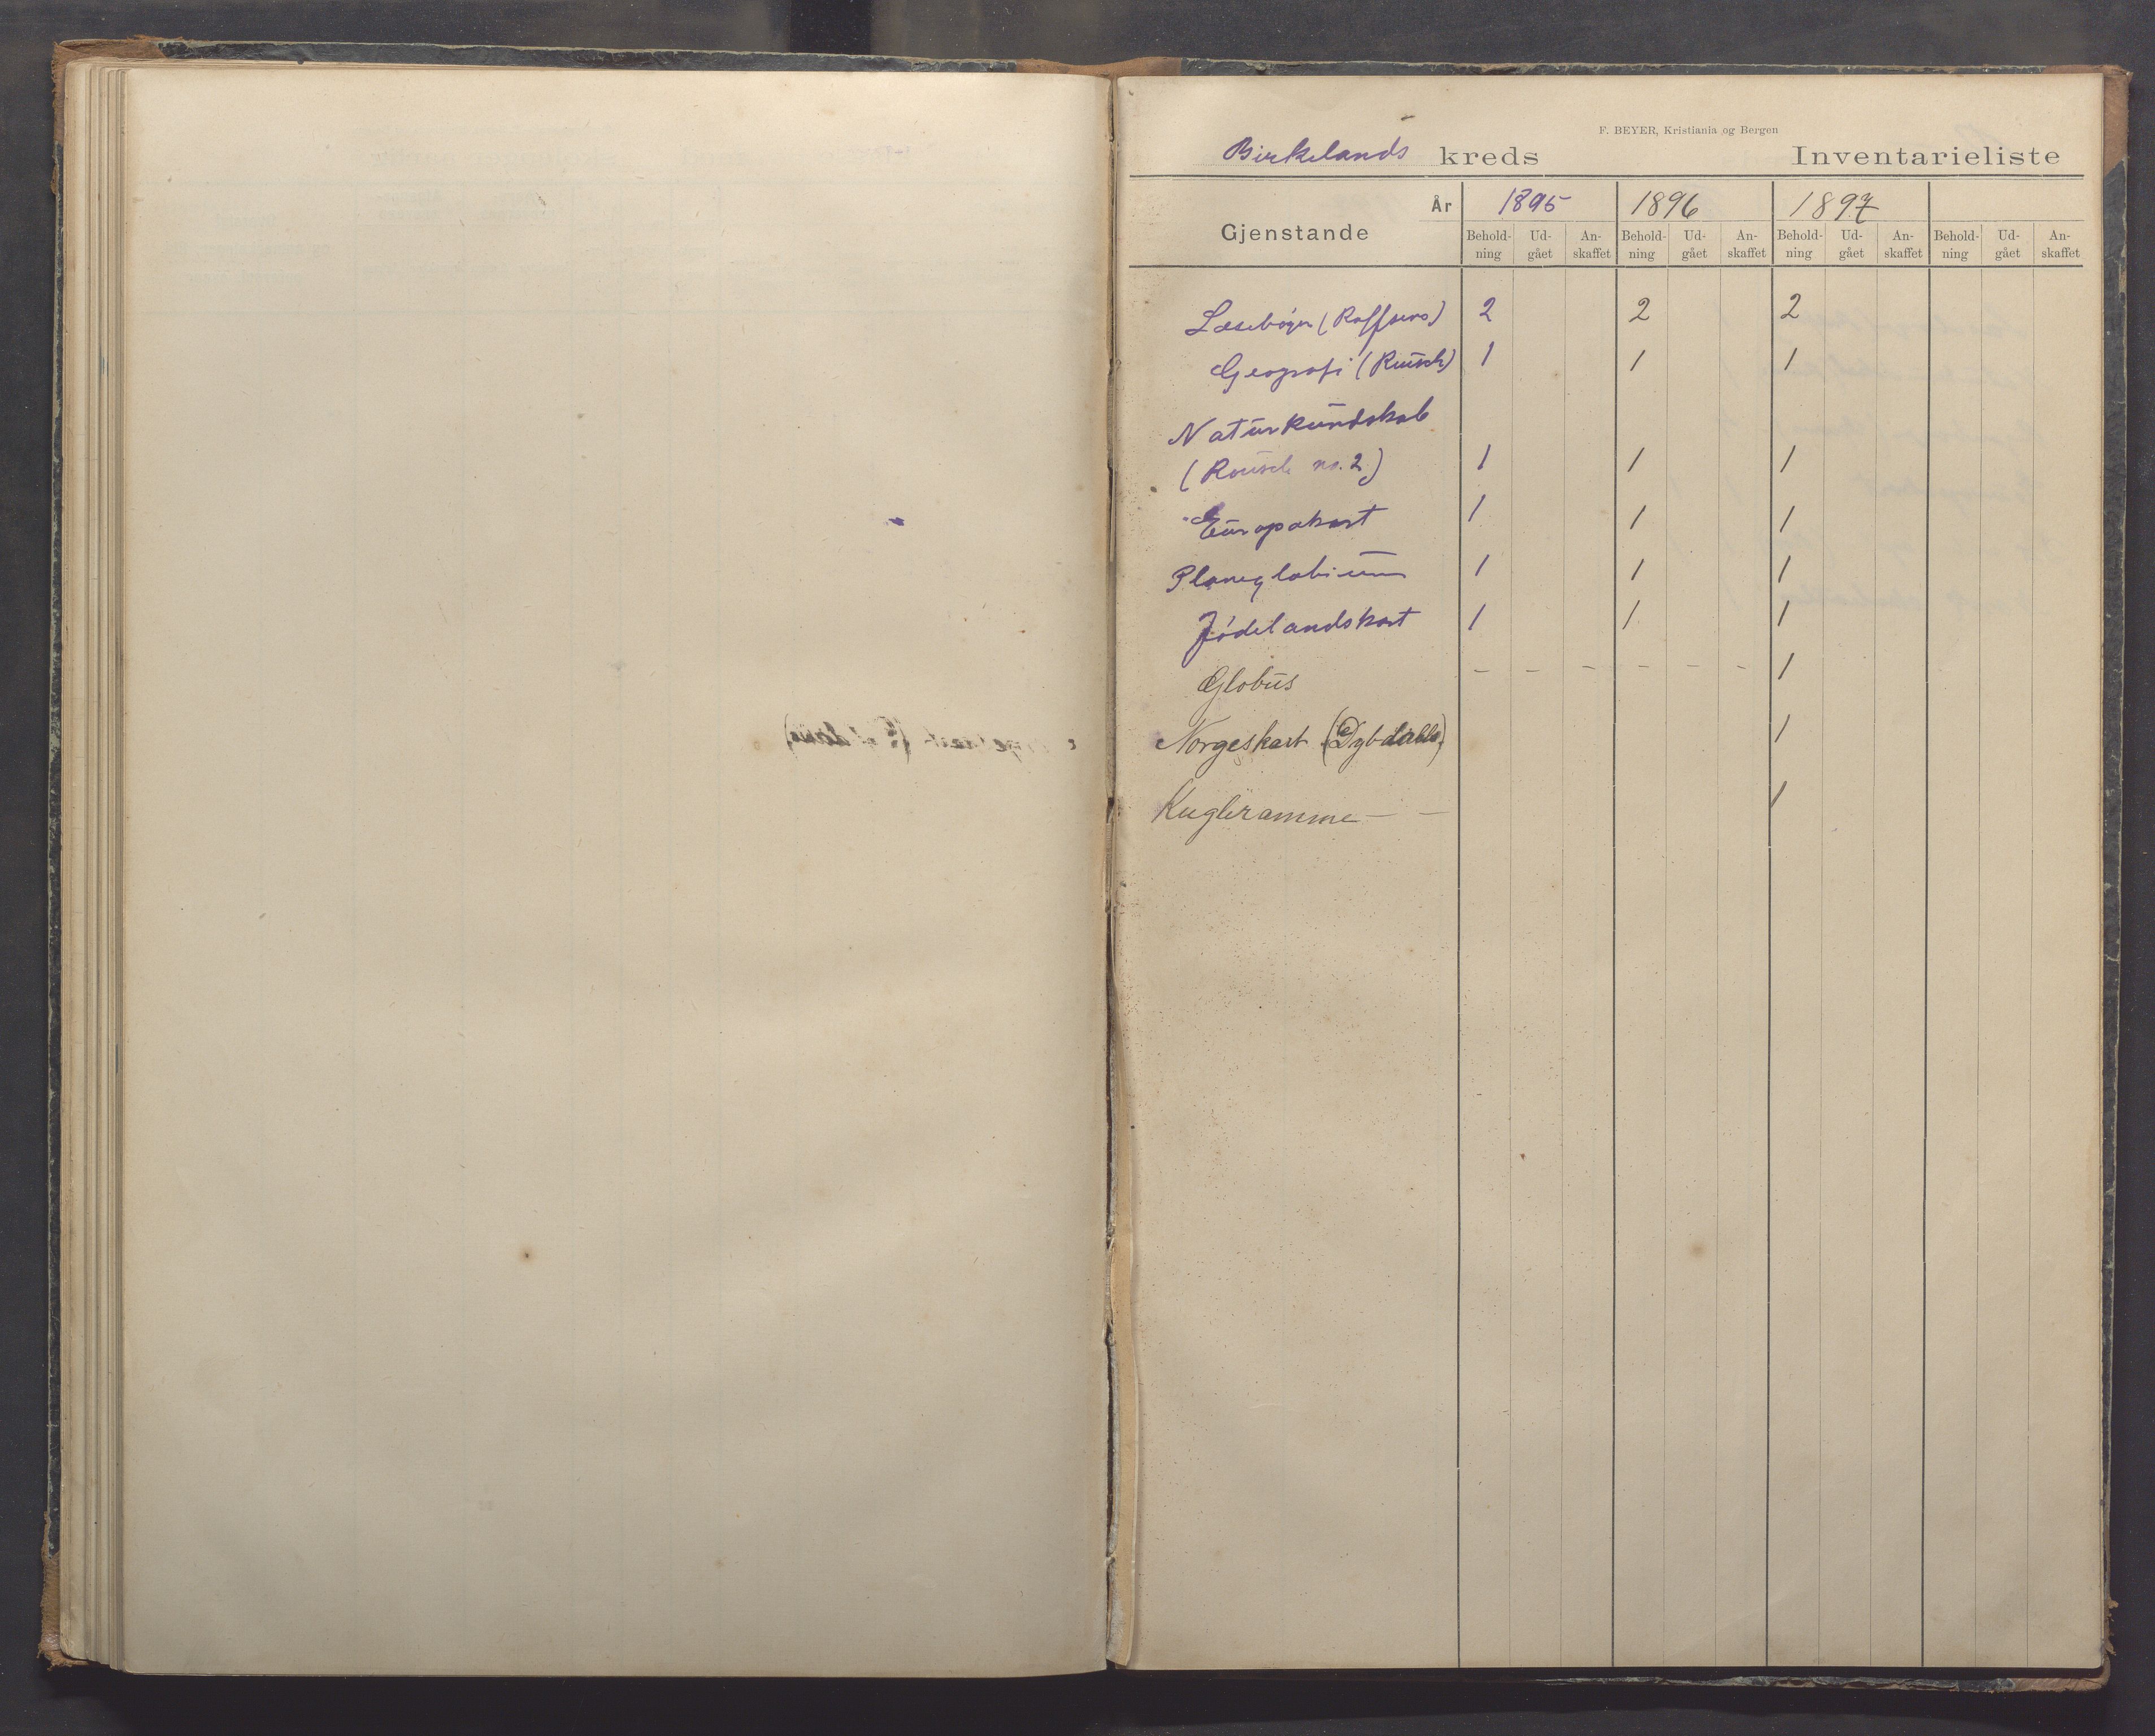 F. BEYER, Kristiania og Bergen
Birkelands kreds Inventarieliste
År 1895 1896 1897
Gjenstande Behold-ning Ud-gået An-skaffet Behold-ning Ud-gået An-skaffet Behold-ning Ud-gået An-skaffet Behold-ning Ud-gået An-skaffet
Læsebøger (Rolfsens) 2 2 2
Geografi (Reusch) 1 1 1
Naturkundskab
(Reusch no. 2) 1 1 1
Europakart 1 1 1
Planiglobium 1 1 1
Jødelandskart 1 1 1
Globus – – – – – – 1
Norgeskart (Dybdahls) 1
Kugleramme – – 1